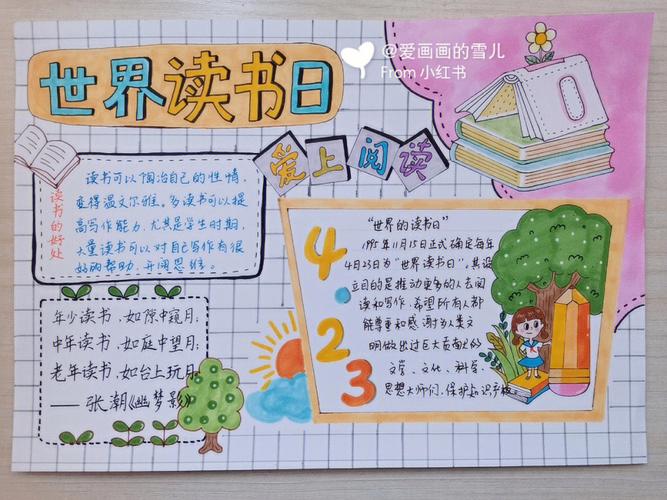 @爱画画的雪儿
From 小红书
世界读书日
爱上阅读
读书的好处
读书可以陶冶自己的性情,
变得温文尔雅。多读书可以提
高写作能力,尤其是学生时期,
大量读书可以对自己写作有很
好的帮助,开阔思维。
年少读书,如隙中窥月;
中年读书,如庭中望月;
老年读书,如台上玩月
——张潮《幽梦影》
4.
2
3
"世界的读书日"
1995年11月15日正式确定每年
4月23日为"世界读书日",其设
立目的是推动更多的人去阅
读和写作,希望所有人都
能尊重和感谢为人类文
明做出过巨大贡献的
文学、文化、科学、
思想大师们,保护知识产权。